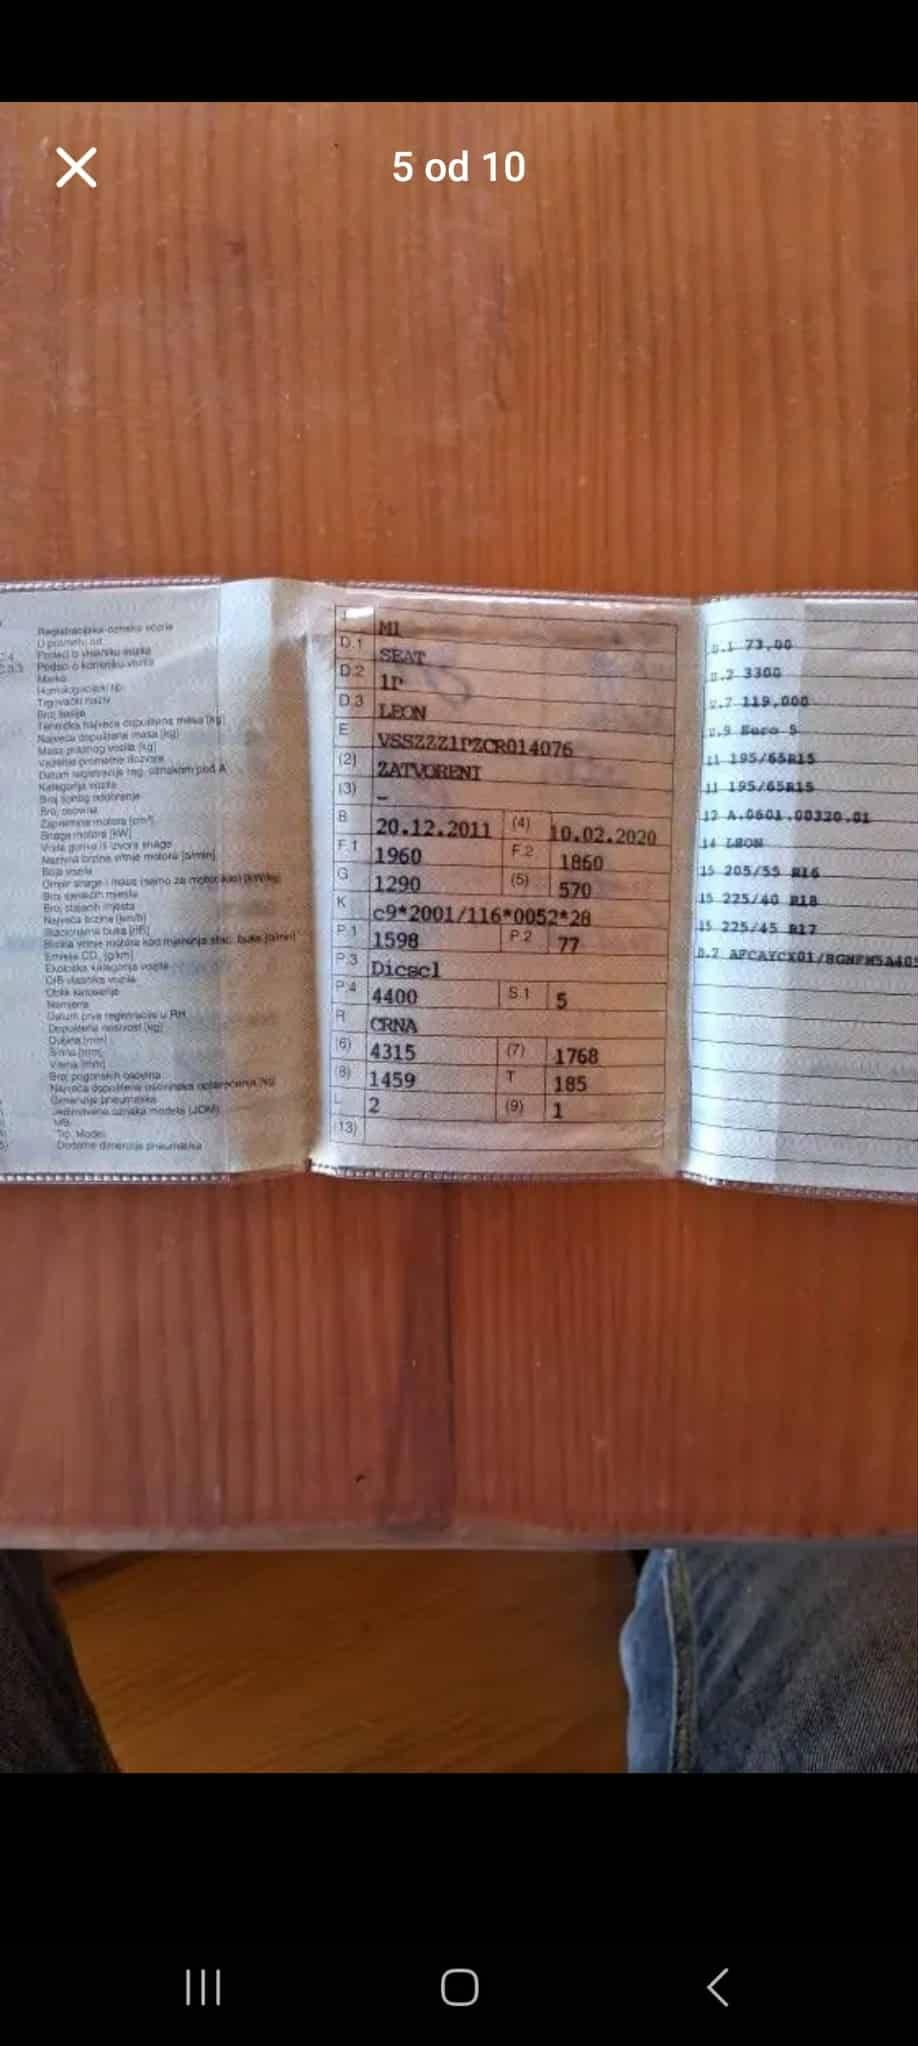 5 od 10
Registracijska oznaka vozila
Podaci o vlasniku vozila
Podaci o korisniku vozila
Marka
Homologacijski tip
Trgovački naziv
Broj šasije
Tehnička najveća dopuštena masa [kg]
Najveća dopuštena masa [kg]
Masa praznog vozila [kg]
Datum registracije reg. oznakom pod A
Kategorija vozila
Broj osovina
Zapremina motora [cm³]
Snaga motora [kW]
Vrsta goriva ili izvora snage
Boja vozila
Omjer snage i mase (samo za motocikle) [kW/kg]
Broj sjedećih mjesta
Broj stajaćih mjesta
Najveća brzina [km/h]
Stacionarna buka [dB]
Emisija CO₂ [g/km]
Ekološka kategorija vozila
OIB vlasnika vozila
Oblik karoserije
Namjena
Datum prve registracije u RH
Dopuštena nosivost [kg]
Dužina [mm]
Širina [mm]
Visina [mm]
Broj pogonskih osovina
Dimenzije pneumatika
Jedinstvena oznaka modela (JOM)
MB
Tip, Model
Dodatne dimenzije pneumatika
J M1
D.1 SEAT
D.2 1P
D.3 LEON
E VSSZZZ1PZCR014076
(2) ZATVORENI
(3) –
B 20.12.2011 (4) 10.02.2020
F.1 1960 F.2 1860
G 1290 (5) 570
K c9*2001/116*0052*28
P.1 1598 P.2 77
P.3 Diesel
P.4 4400 S.1 5
R CRNA
(6) 4315 (7) 1768
(8) 1459 T 185
L 2 (9) 1
(13)
U.1 73,00
U.2 3300
V.7 119,000
V.9 Euro 5
11 195/65R15
11 195/65R15
12 A.0601.00320.01
14 LEON
15 205/55 R16
15 225/40 R18
15 225/45 R17